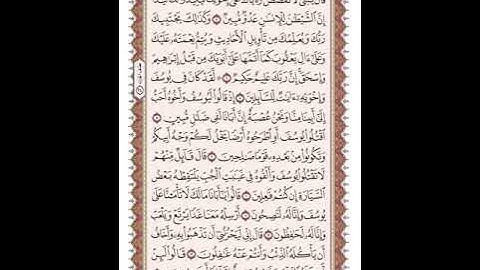 قَالَ يَٰبُنَىَّ لَا تَقْصُصْ رُءْيَاكَ عَلَىٰٓ إِخْوَتِكَ
إِنَّ ٱلشَّيْطَٰنَ لِلْإِنسَٰنِ عَدُوٌّ مُّبِينٌ ۝٥ وَكَذَٰلِكَ يَجْتَبِيكَ
رَبُّكَ وَيُعَلِّمُكَ مِن تَأْوِيلِ ٱلْأَحَادِيثِ وَيُتِمُّ نِعْمَتَهُۥ عَلَيْكَ
وَعَلَىٰٓ ءَالِ يَعْقُوبَ كَمَآ أَتَمَّهَا عَلَىٰٓ أَبَوَيْكَ مِن قَبْلُ إِبْرَٰهِيمَ
وَإِسْحَٰقَۚ إِنَّ رَبَّكَ عَلِيمٌ حَكِيمٌ ۝٦ ۞ لَّقَدْ كَانَ فِى يُوسُفَ
وَإِخْوَتِهِۦٓ ءَايَٰتٌ لِّلسَّآئِلِينَ ۝٧ إِذْ قَالُوا۟ لَيُوسُفُ وَأَخُوهُ أَحَبُّ
إِلَىٰٓ أَبِينَا مِنَّا وَنَحْنُ عُصْبَةٌ إِنَّ أَبَانَا لَفِى ضَلَٰلٍ مُّبِينٍ ۝٨
ٱقْتُلُوا۟ يُوسُفَ أَوِ ٱطْرَحُوهُ أَرْضًا يَخْلُ لَكُمْ وَجْهُ أَبِيكُمْ
وَتَكُونُوا۟ مِنۢ بَعْدِهِۦ قَوْمًا صَٰلِحِينَ ۝٩ قَالَ قَآئِلٌ مِّنْهُمْ
لَا تَقْتُلُوا۟ يُوسُفَ وَأَلْقُوهُ فِى غَيَٰبَتِ ٱلْجُبِّ يَلْتَقِطْهُ بَعْضُ
ٱلسَّيَّارَةِ إِن كُنتُمْ فَٰعِلِينَ ۝١٠ قَالُوا۟ يَٰٓأَبَانَا مَا لَكَ لَا تَأْمَ۫نَّا عَلَىٰ
يُوسُفَ وَإِنَّا لَهُۥ لَنَٰصِحُونَ ۝١١ أَرْسِلْهُ مَعَنَا غَدًا يَرْتَعْ وَيَلْعَبْ
وَإِنَّا لَهُۥ لَحَٰفِظُونَ ۝١٢ قَالَ إِنِّى لَيَحْزُنُنِىٓ أَن تَذْهَبُوا۟ بِهِۦ وَأَخَافُ
أَن يَأْكُلَهُ ٱلذِّئْبُ وَأَنتُمْ عَنْهُ غَٰفِلُونَ ۝١٣ قَالُوا۟ لَئِنْ